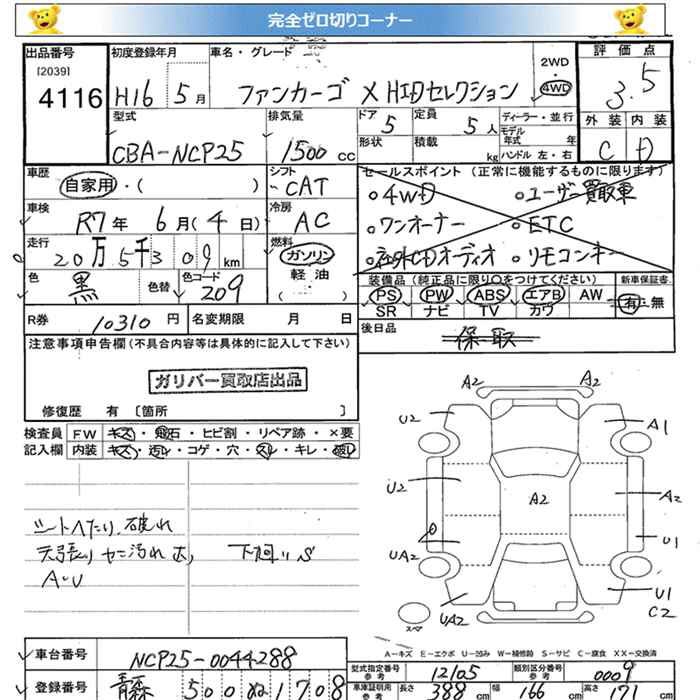 完全ゼロ切りコーナー
出品番号 初度登録年月 車名・グレード 2WD 評価点
[2039]
4116 H16 5月 ファンカーゴ X HIDセレクション 4WD 3.5
型式 排気量 ドア 定員 ディーラー・並行 外装 内装
5 5人 モデル年式 年
CBA-NCP25 1500cc 形状 積載 kg ハンドル 左・右 C D
車歴 シフト セールスポイント (正常に機能するものに限ります)
自家用・( ) CAT ○4WD ○ユーザー買取車
車検 冷房
R7年 6月(4日) AC ○ワンオーナー ○ETC
走行 燃料
20万5千309km ガソリン ○社外CDオーディオ ○リモコンキー
色 色替 色コード 軽油 装備品 (純正品に限り○をつけてください) 新車保証書
黒 209 ( ) PS PW ABS エアB AW 有・無
SR ナビ TV カワ
R券 10310円 名変期限 月 日 後日品 保 取
注意事項申告欄(不具合内容等は具体的に記入して下さい)
ガリバー買取店出品
修復歴 有 〔箇所 〕
検査員 FW キズ・飛石・ヒビ割・リペア跡・×要
記入欄 内装 キズ・汚レ・コゲ・穴・スレ・キレ・破レ
A2 A2
U2 A1
U2 A2 A2
U1
UA2
UA2 U1
C2
スペア
シートヘたり、破れ
天張り ヤニ汚れ 大、 下廻りS
A・U
A-キズ E-エクボ U-凹み W-補修跡 S-サビ C-腐食 XX-交換済
車台番号 NCP25-0044288 型式指定番号 参考 12105 類別区分番号 参考 0009
登録番号 青森 500 ぬ1708 車庫証明用 参考 長さ 388cm 幅 166cm 高さ 171cm